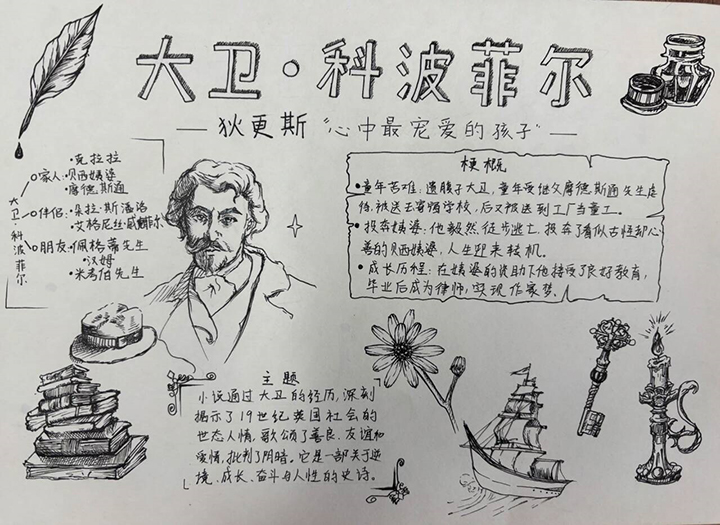 大卫·科波菲尔
—狄更斯“心中最宠爱的孩子”—
大卫·科波菲尔
家人:
·克拉拉
·贝西姨婆
·摩德斯通
伴侣:
·朵拉·斯潘洛
·艾格尼丝·威
朋友:
·佩格蒂先生
·汉姆
·米考伯先生
梗概
·童年苦难:遗腹子大卫,童年受继父摩德斯通先生虐
待,被送去寄宿学校,后又被送到工厂当童工。
·投奔姨婆:他毅然徒步逃亡,投奔了看似古怪却心
善的贝西姨婆,人生迎来转机。
·成长历程:在姨婆的资助下他接受了良好教育,
毕业后成为律师,实现作家梦。
主题
小说通过大卫的经历,深刻
揭示了19世纪英国社会的
世态人情,歌颂了善良、友谊和
爱情,批判了阴暗,它是一部关于逆
境、成长、奋斗与人性的史诗。